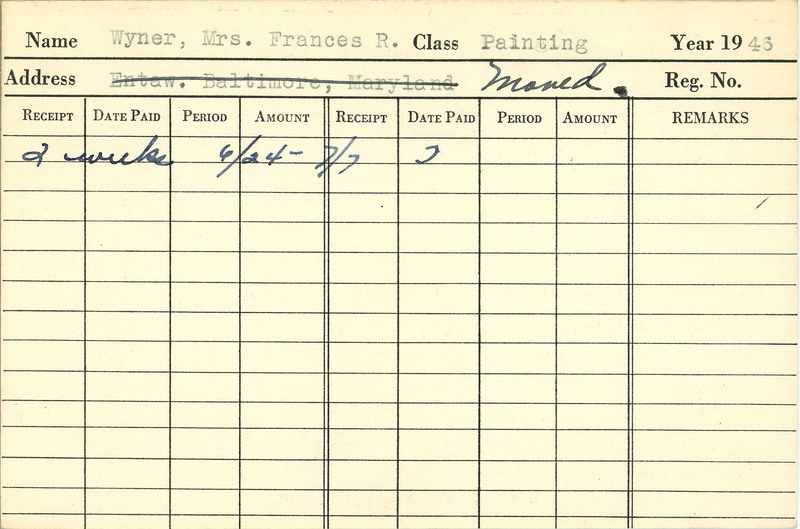 Name Wyner, Mrs. Frances R. Class Painting Year 1946
Address Entaw. Baltimore, Maryland Moved. Reg. No.
RECEIPT DATE PAID PERIOD AMOUNT RECEIPT DATE PAID PERIOD AMOUNT REMARKS
2 weeks 6/24- 7/7